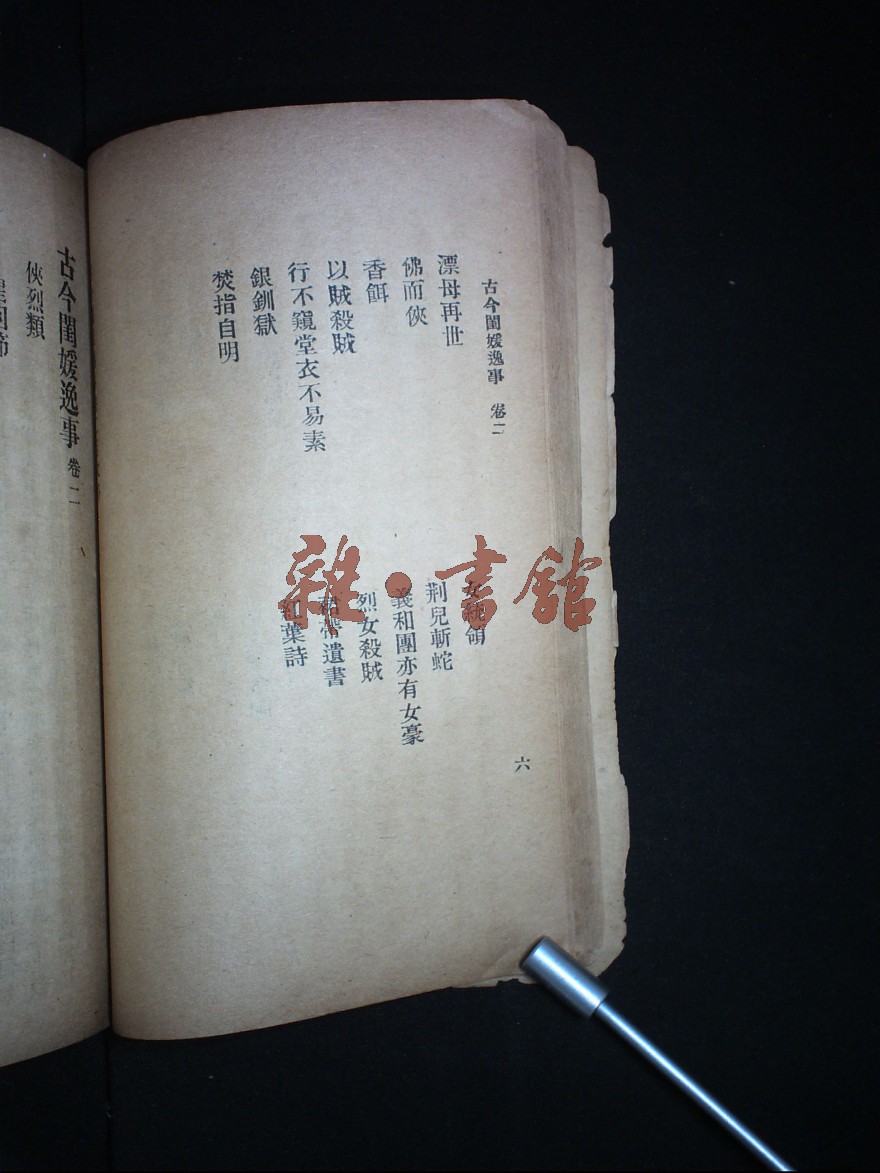 古今閨媛逸事 卷二
漂母再世
佛而俠
香餌
以賊殺賊
行不窺堂衣不易素
銀釧獄
焚指自明
女統領
荆兒斬蛇
義和團亦有女豪
烈女殺賊
裙帶遺書
紅葉詩
六
古今閨媛逸事 卷二
俠烈類
雜·書館